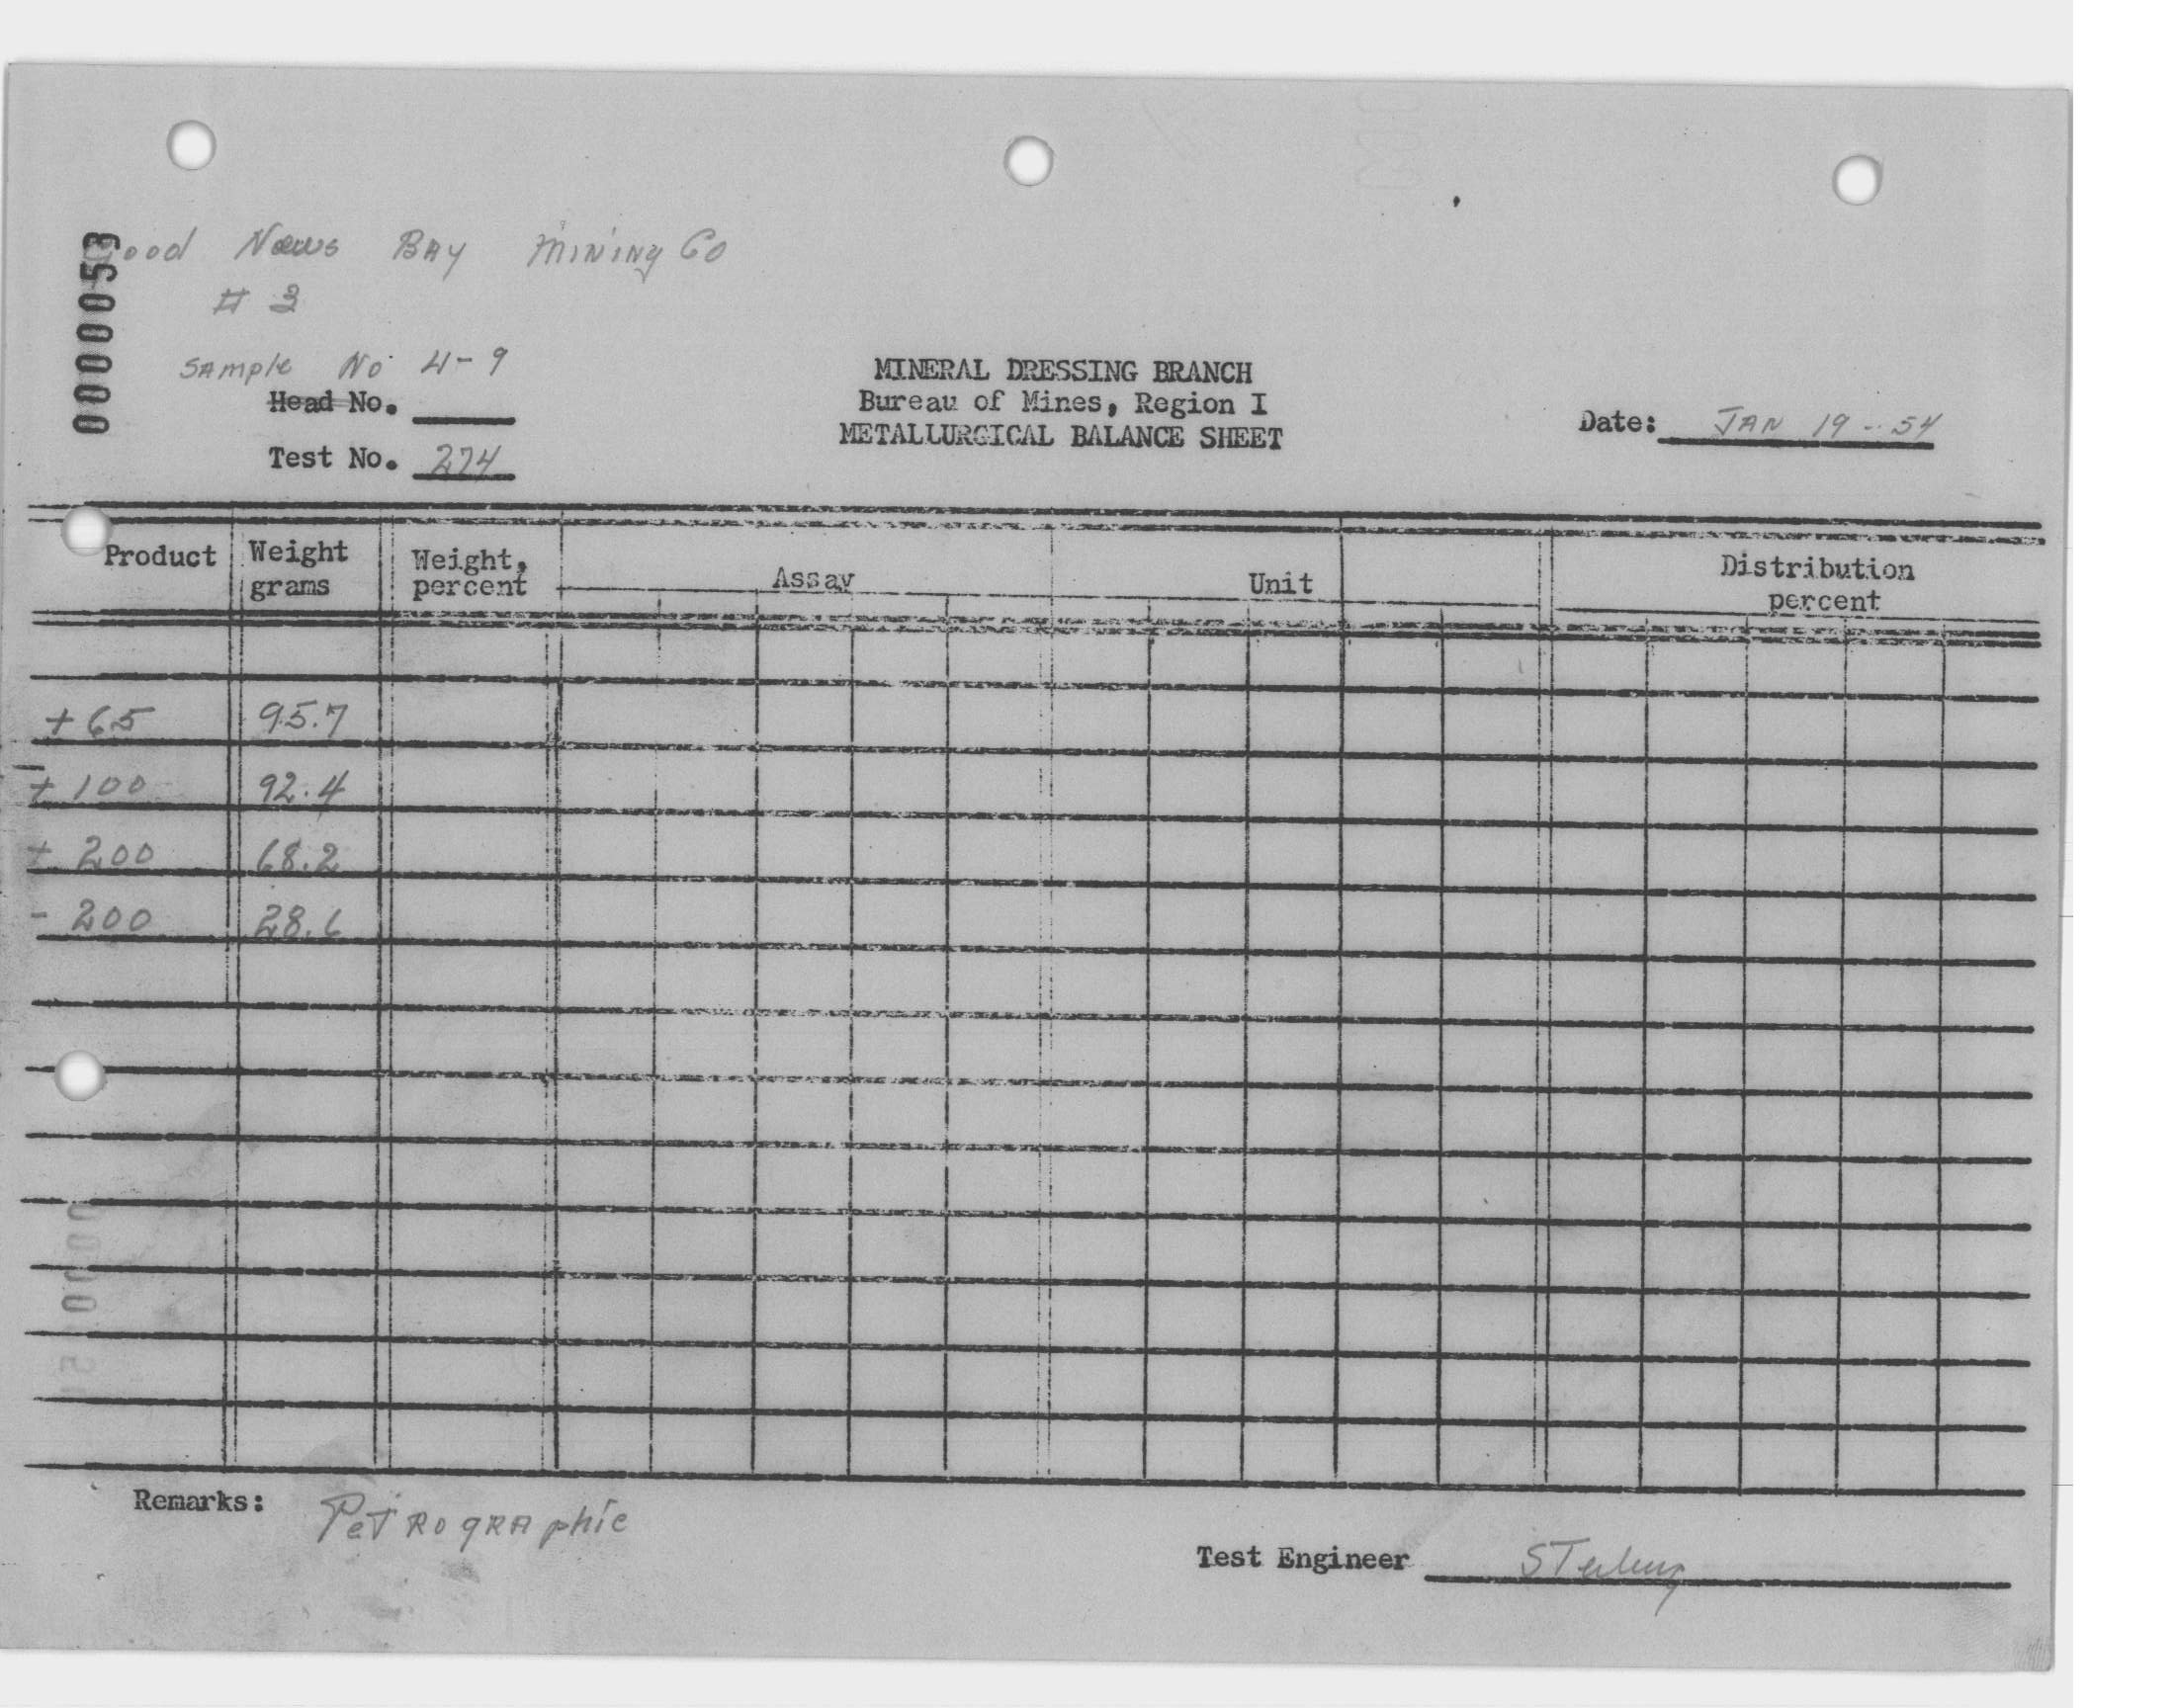 0000053
Good News Bay Mining Co
# 3
Sample No 4-9
Head No.
Test No. 274
MINERAL DRESSING BRANCH
Bureau of Mines, Region I
METALLURGICAL BALANCE SHEET
Date: JAN 19 - 54
Product Weight grams Weight, percent Assay Unit Distribution percent
+65 95.7
+ 100 92.4
+ 200 68.2
- 200 28.6
Remarks: Petrographic
Test Engineer